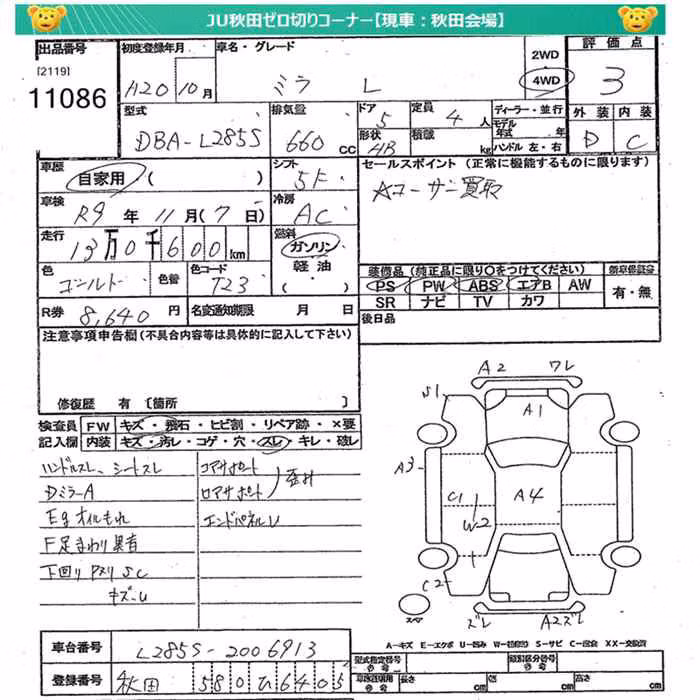 JU秋田ゼロ切りコーナー【現車:秋田会場】
出品番号
[2119]
11086
初度登録年月
H20 10月
車名・グレード
ミラ L
2WD
4WD
評価点
3
外装 内装
D C
型式
DBA-L285S
排気量
660 cc
ドア
5
定員
4 人
形状
HB
積載
kg
ディーラー・並行
モデル年式 年
ハンドル 左・右
車歴
自家用 ( )
シフト
5F
セールスポイント (正常に機能するものに限ります)
☆ユーザー買取
車検
R9 年 11 月 (7 日)
冷房
AC
走行
13万0千600km
燃料
ガソリン
軽油
( )
色
ゴールド
色替
色コード
T23
装備品 (純正品に限り○をつけてください)
PS PW ABS エアB AW
SR ナビ TV カワ
有・無
R券 8,640 円
名変通知期限 月 日
後日品
注意事項申告欄(不具合内容等は具体的に記入して下さい)
修復歴 有 〔箇所 〕
検査員記入欄
FW キズ・飛石・ヒビ割・リペア跡・×要
内装 キズ・汚レ・コゲ・穴・スレ・キレ・破レ
ハンドルスレ、シートスレ
DミラーA
Egオイルもれ
F足まわり異音
下回りPスリ SC
キズ-U
コアサポート
ロアサポート
歪み
エンドパネルU
A2 ワレ
S1
A1
A3
C1
W2
A4
C2
スペア
ズレ
A2ズレ
A-キズ E-エクボ U-凹み W-波(補修) S-サビ C-腐食 XX-交換済
車台番号
L285S-2006913
登録番号
秋田 580 ひ 6405
型式指定番号
類別区分番号
長さ cm
幅 cm
高さ cm